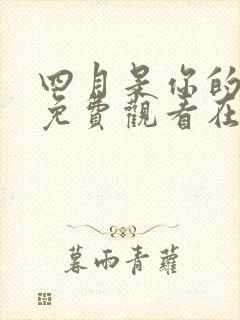 四月是你的
免費觀看在
暮雨青蘿